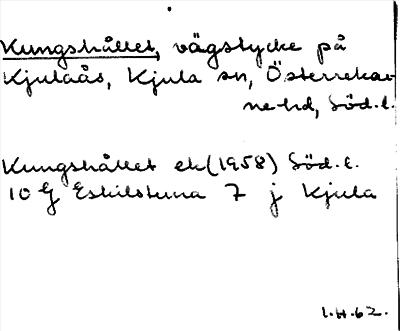 Kungshållet, vägstycke på
Kjulaås, Kjula sn, Österrekar
ne hd, Söd. l.
Kungshållet ek (1958) Söd. l.
10 G Eskilstuna 7 j Kjula
1.H.62.